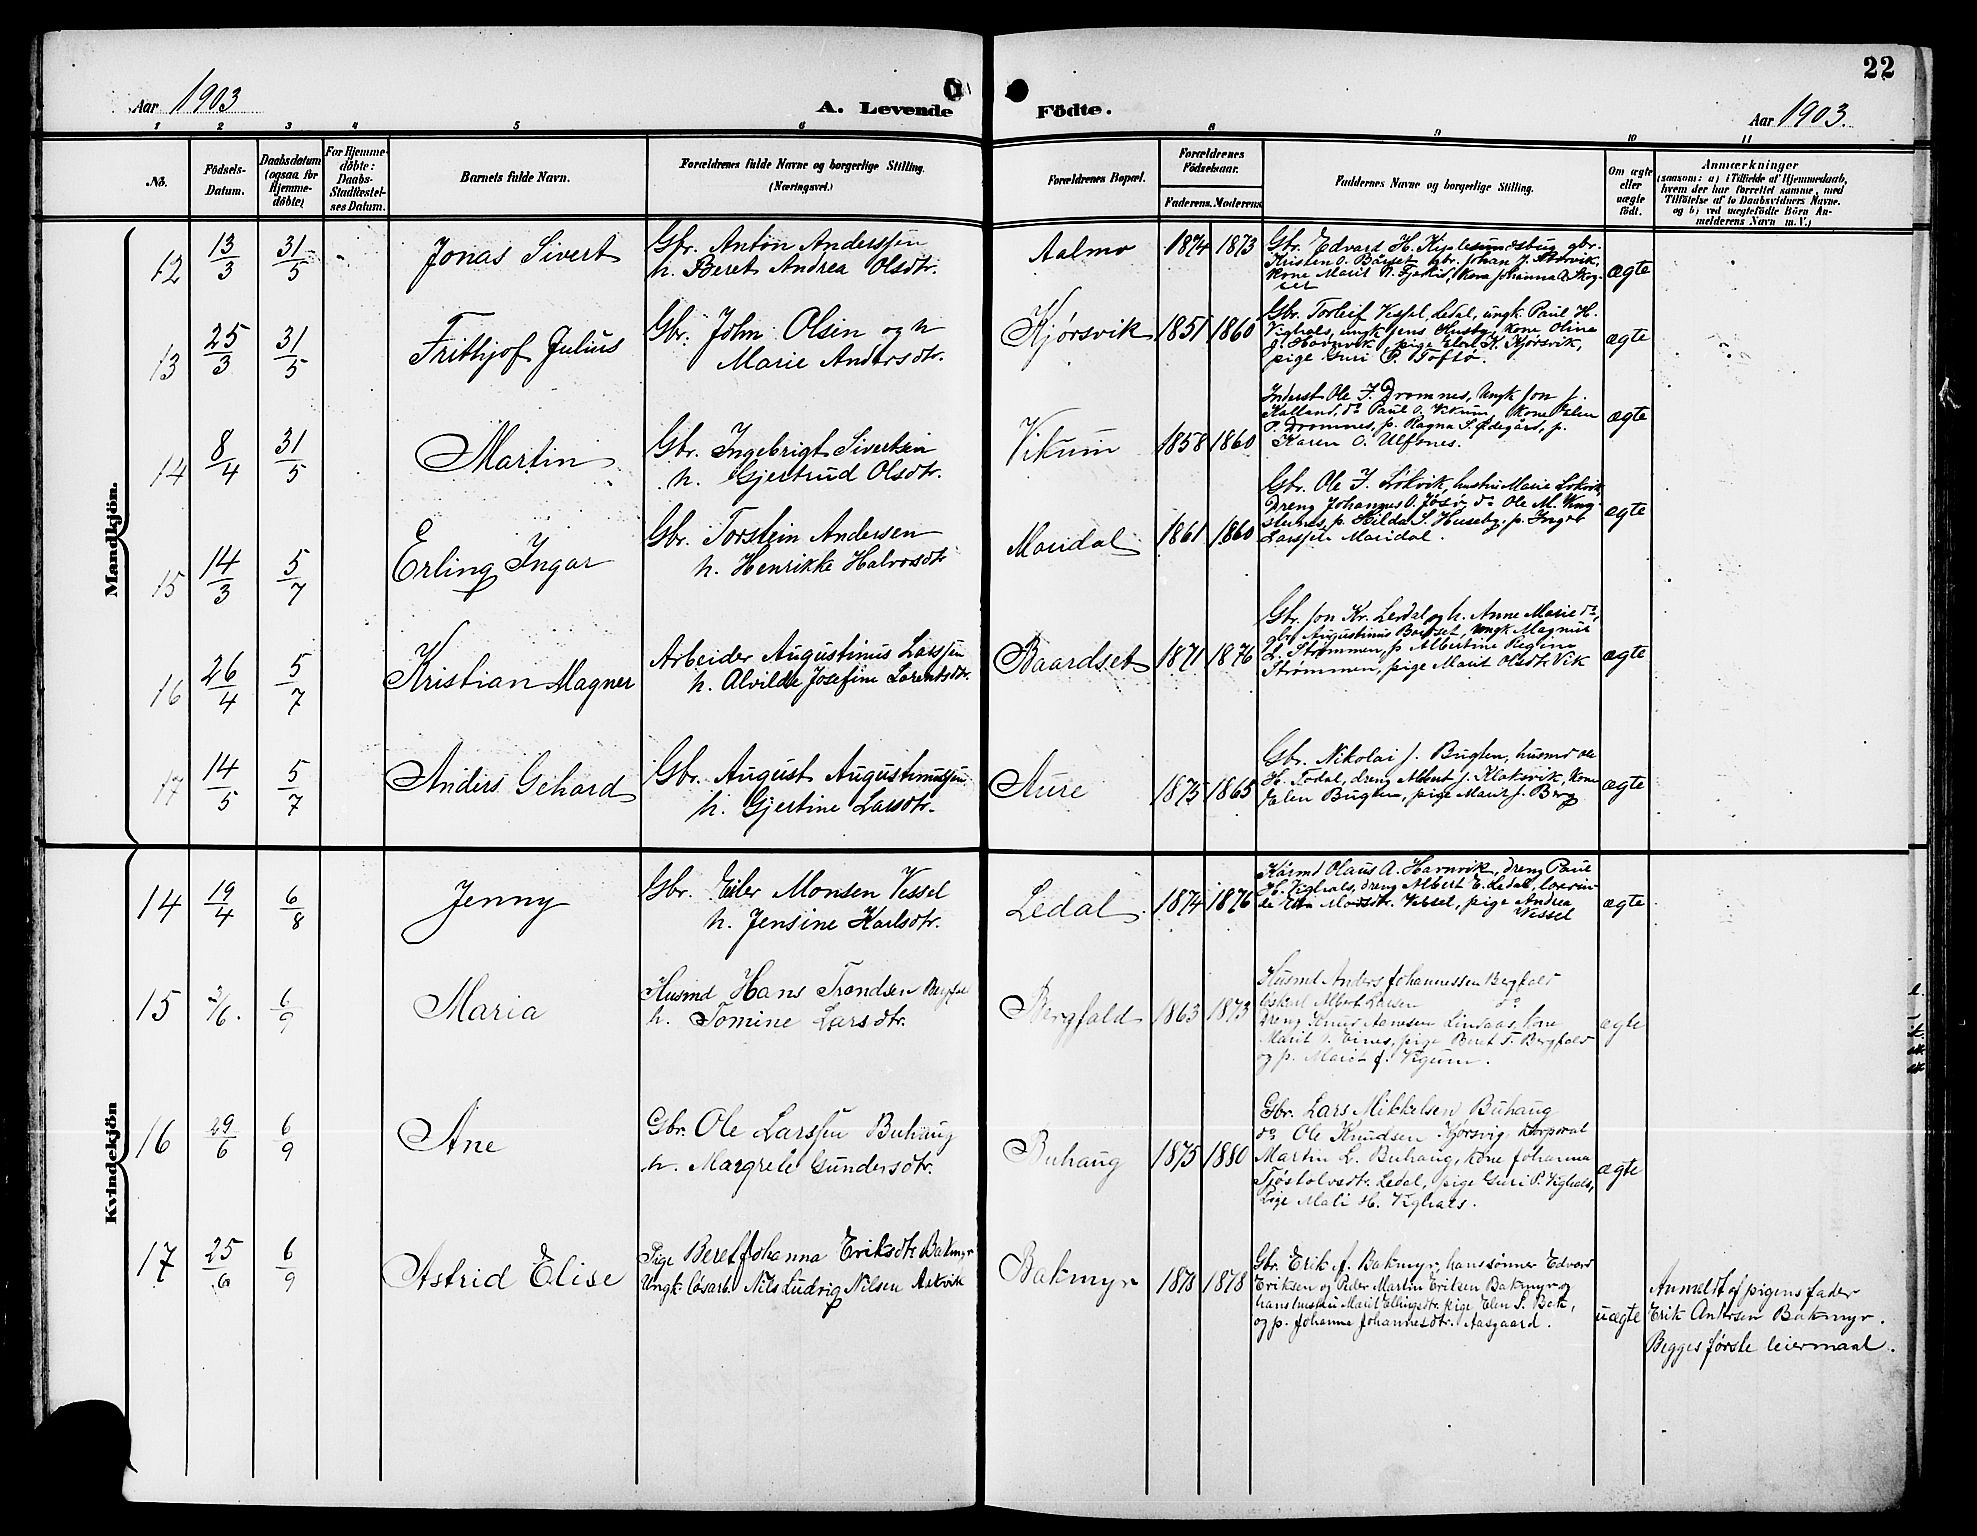 22
Aar 1903
A. Levende Födte.
Aar 1903.
1 2 3 4 5 6 8 9 10 11
No.
Födsels-Datum.
Daabsdatum (ogsaa for Hjemmedöbte)
For Hjemmedöbte: Daabs-Stadfæstelses Datum.
Barnets fulde Navn.
Forældrenes fulde Navne og borgerlige Stilling. (Næringsvei.)
Forældrenes Bopæl.
Forældrenes Födselsaar.
Faderens. Moderens.
Faddernes Navne og borgerlige Stilling.
Om ægte eller uægte födt.
Anmærkninger
(saasom: a) i Tilfælde af Hjemmedaab,
hvem der har forrettet samme, med
Tilföielse af to Daabsvidners Navne.
og b) ved uægtefödte Börn An-
melderens Navn m. V.)
Mandkjön.
12 13/3 31/5 Jonas Sivert
Gbr. Anton Anderssen
h. Beret Andrea Olsdtr.
Aalmo 1874 1873
Gbr. Edvard H.
Kristen O. Bårset gbr. Johan J.
kone Marit kone Johanna
ægte
13 25/3 31/5 Frithjof Julius
Gbr. John Olsen og h
Marie Andersdtr.
Kjørsvik 1851 1860
Gbr. Torleif Vessel, Ledal, ungk. Paul H.
Vighals, ungk Jens Husby, kone Olina
Havnvik, pige Elen K. Kjørsvik,
pige Guri P. Toftø.
ægte
14 8/4 31/5 Martin
Gbr. Ingebrigt Sivertsen
h. Gjertrud Olsdtr.
Vikum 1858 1860
Inderst Ole J. Dromnes, Ungk Jon J.
Kalland, do Paul O. Vikum, kone Elen
P. Dromnes, p. Ragna S. Ødegård, p.
Karen O. Ulfsnes.
ægte
15 14/3 5/7 Erling Ingar
Gbr. Torstein Andersen
h. Henrikke Halvorsdtr
Maridal 1861 1860
Gbr. Ole J. hustru Marie
Dreng Johannes O. Jøsø do Ole M.
p. Hilda S. Huseby, p. Inger
Larssen Maridal.
ægte
16 26/4 5/7 Kristian Magner
Arbeider Augustinus Larssen
h. Alvilde Josefine Lorentsdtr.
Baardset 1871 1876
Gbr. Jon Kr. Lerdal og h. Anne Marie do,
gbr Augustinus Baardset, ungk Magnus
L. Strømmen, p Albertine Regine
Strømmen, pige Marit Olsdtr Vik
ægte
17 14/5 5/7 Anders Gehard
Gbr. August Augustinussen
h. Gjertine Larsdtr.
Aure 1875 1865
Gbr. Nikolai J. Bugten, husmd Ole
H. Todal, dreng Albert J. Klaksvik, kone
Elen Bugten, pige Marit J. Berg
ægte
Kvindekjön
14 19/4 6/8 Jenny
Gbr. Eiler Monsen Vessel
h. Jensine Karlsdtr.
Ledal. 1874 1876
Olaus A. Havnvik, dreng Paul
H. Vighals, dreng Albert E. Ledal,
Vessel, pige Andrea
Vessel
ægte
15 2/6. 6/9 Maria
Husmd Hans Trondsen Bergfald
h. Tomine Larsdtr.
Bergfald 1863 1873
Husmd Anders Johannessen Bergfald
Albert Larsen do
Dreng Knud Lindaas, kone
Marit O. Vines, pige Beret T. Bergfald
og p. Marit J. Vigum.
ægte
16 29/6 6/9 Ane
Gbr. Ole Larssen Buhaug
h. Margrete Gundersdtr.
Buhaug 1875 1880
Gbr. Lars Mikkelsen Buhaug
do Ole Knudsen Kjørsvig, korporal
Martin L. Buhaug, kone Johanna
Tjøstolvsdtr. Ledal, pige Guri P. Vighals,
Pige Mali H. Vighals.
ægte
17 25/6 6/9 Astrid Elise
Pige Beret Johanna Eriksdtr Bakmyr
Ungk. løsarb. Nils Ludvig Nilsen Askvik
Bakmyr 1878 1878
Gbr. Erik A. Bakmyr, hans sønner Edvard
Eriksen og Peder Martin Eriksen Bakmyr og
hans hustru Marit Ellingsdtr. pige Elen S. Bak,
og p. Johanna Johannesdtr. Aasgaard.
uægte
Anmeldt af pigens fader
Erik Andersen Bakmyr.
Begges første leiermaal.